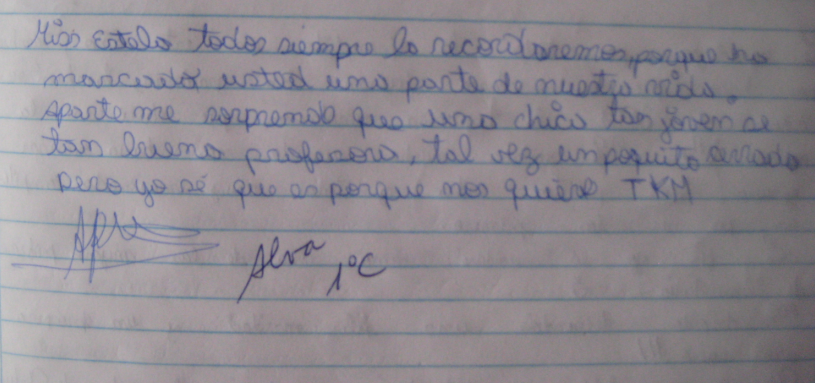 Miss Estela todos siempre la recordaremos, porque ha
marcado usted una parte de nuestra vida.
Aparte me sorprendo que una chica tan jóven se
tan buena profesora, tal vez un poquito
pero yo sé que es porque nos quiere TKM
Alva
1°C